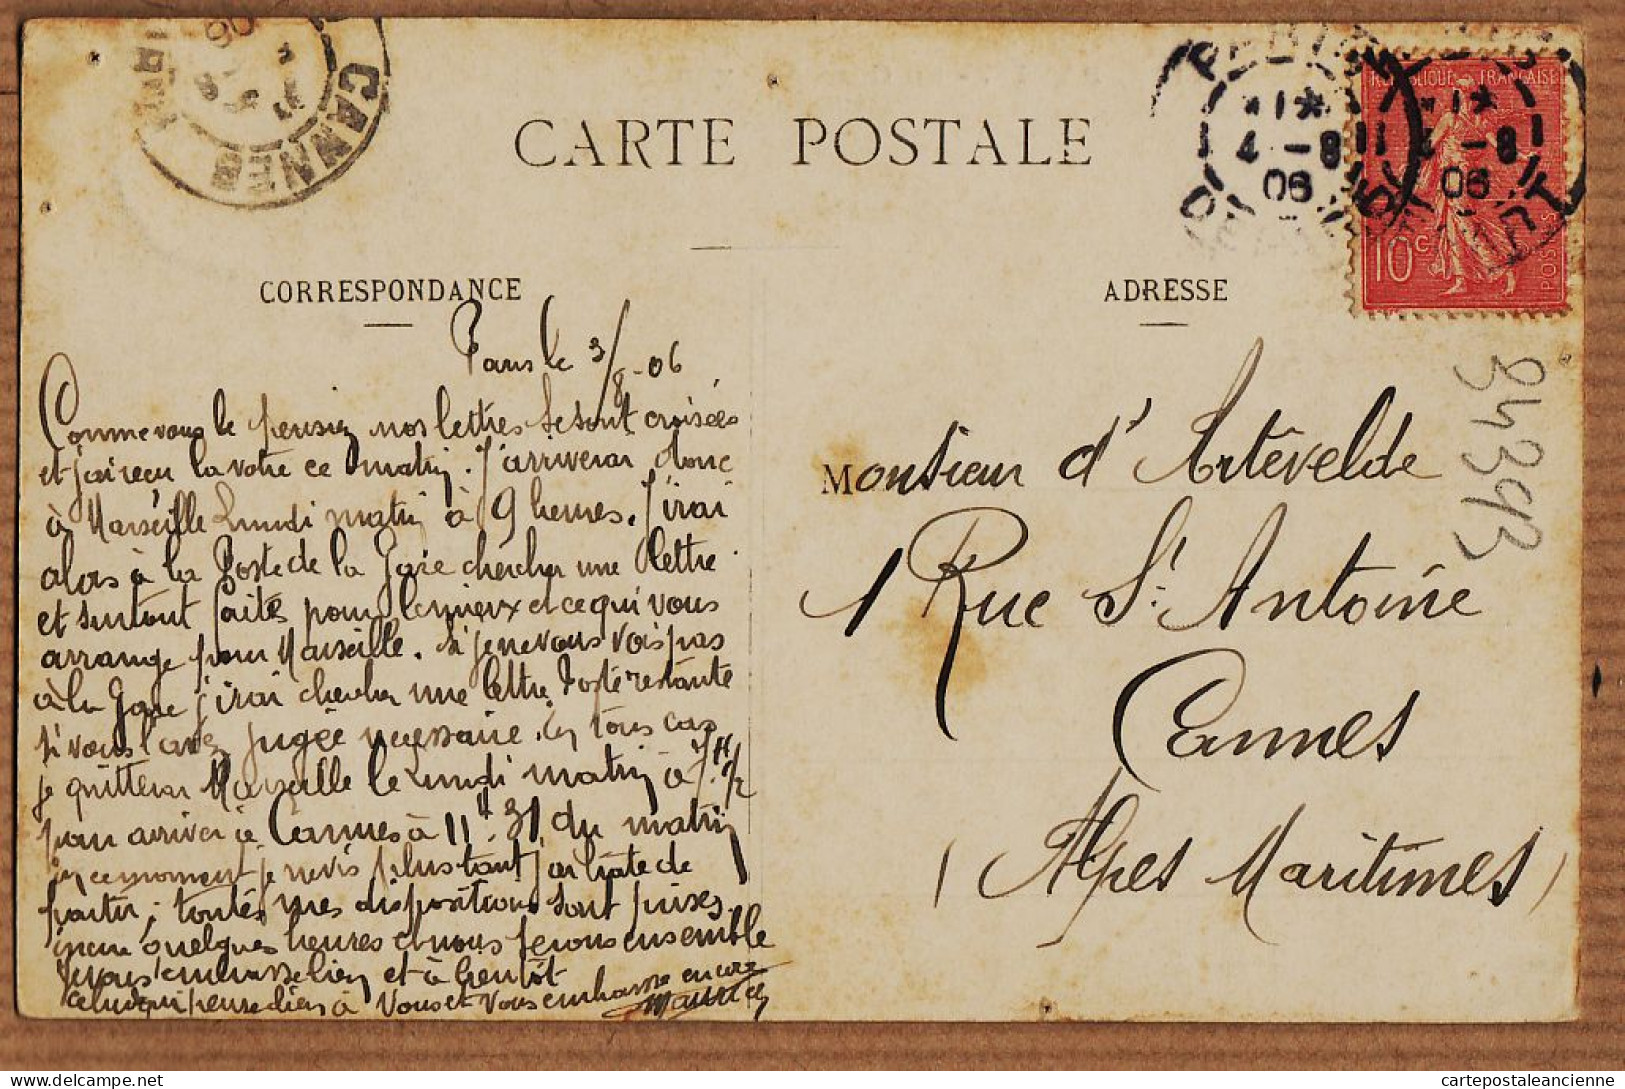 CANNES
06
PARIS
DEPART
4 - 8
06
4 - 8
06
REPUBLIQUE FRANÇAISE
10c
POSTES
CARTE POSTALE
CORRESPONDANCE
ADRESSE
Paris le 3/8-06
Comme vous le pensiez nos lettres se sont croisées
et j'ai reçu la votre ce matin. J'arriverai donc
à Marseille Lundi matin à 9 heures. J'irai
alors à la Poste de la Gare chercher une lettre
et surtout faites pour le mieux et ce qui vous
arrange pour Marseille. Si je ne vous vois pas
à la Gare j'irai chercher une lettre Poste restante
si vous l'avez jugée necessaire. En tous cas
je quitterai Marseille le Lundi matin à 7H 1/2
pour arriver à Cannes à 11H 31 du matin
En ce moment je ne vis plus tant j'ai hâte de
partir; toutes mes dispositions sont prises
quelques heures et nous serons ensemble
Je vous embrasse bien et à bientôt
celui qui pense bien à Vous et Vous embrasse encore
Maurice
Monsieur d'Artévelde
1 Rue St. Antoine
Cannes
(Alpes Maritimes)
34393
cartepostaleancienne